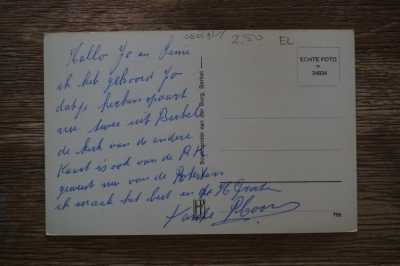 Hallo Jo en Sinie
ik heb gehoord Jo
datje kerken spaart
nu twee uit Berkel
de kerk van de andere
Kaart is ook van de R.K.
geweest nu van de
ik maak het best en de
2,50
EL
ECHTE FOTO
34604
Boekhandel van der Burg, Berkel